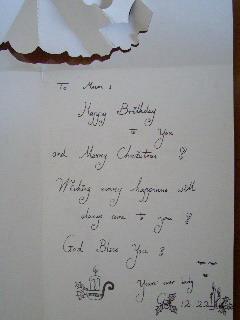 To Mum :
Happy Birthday
to You
and Merry Christmas !!
Wishing every happiness will
always come to you !!
God Bless You !!
Your
12.22